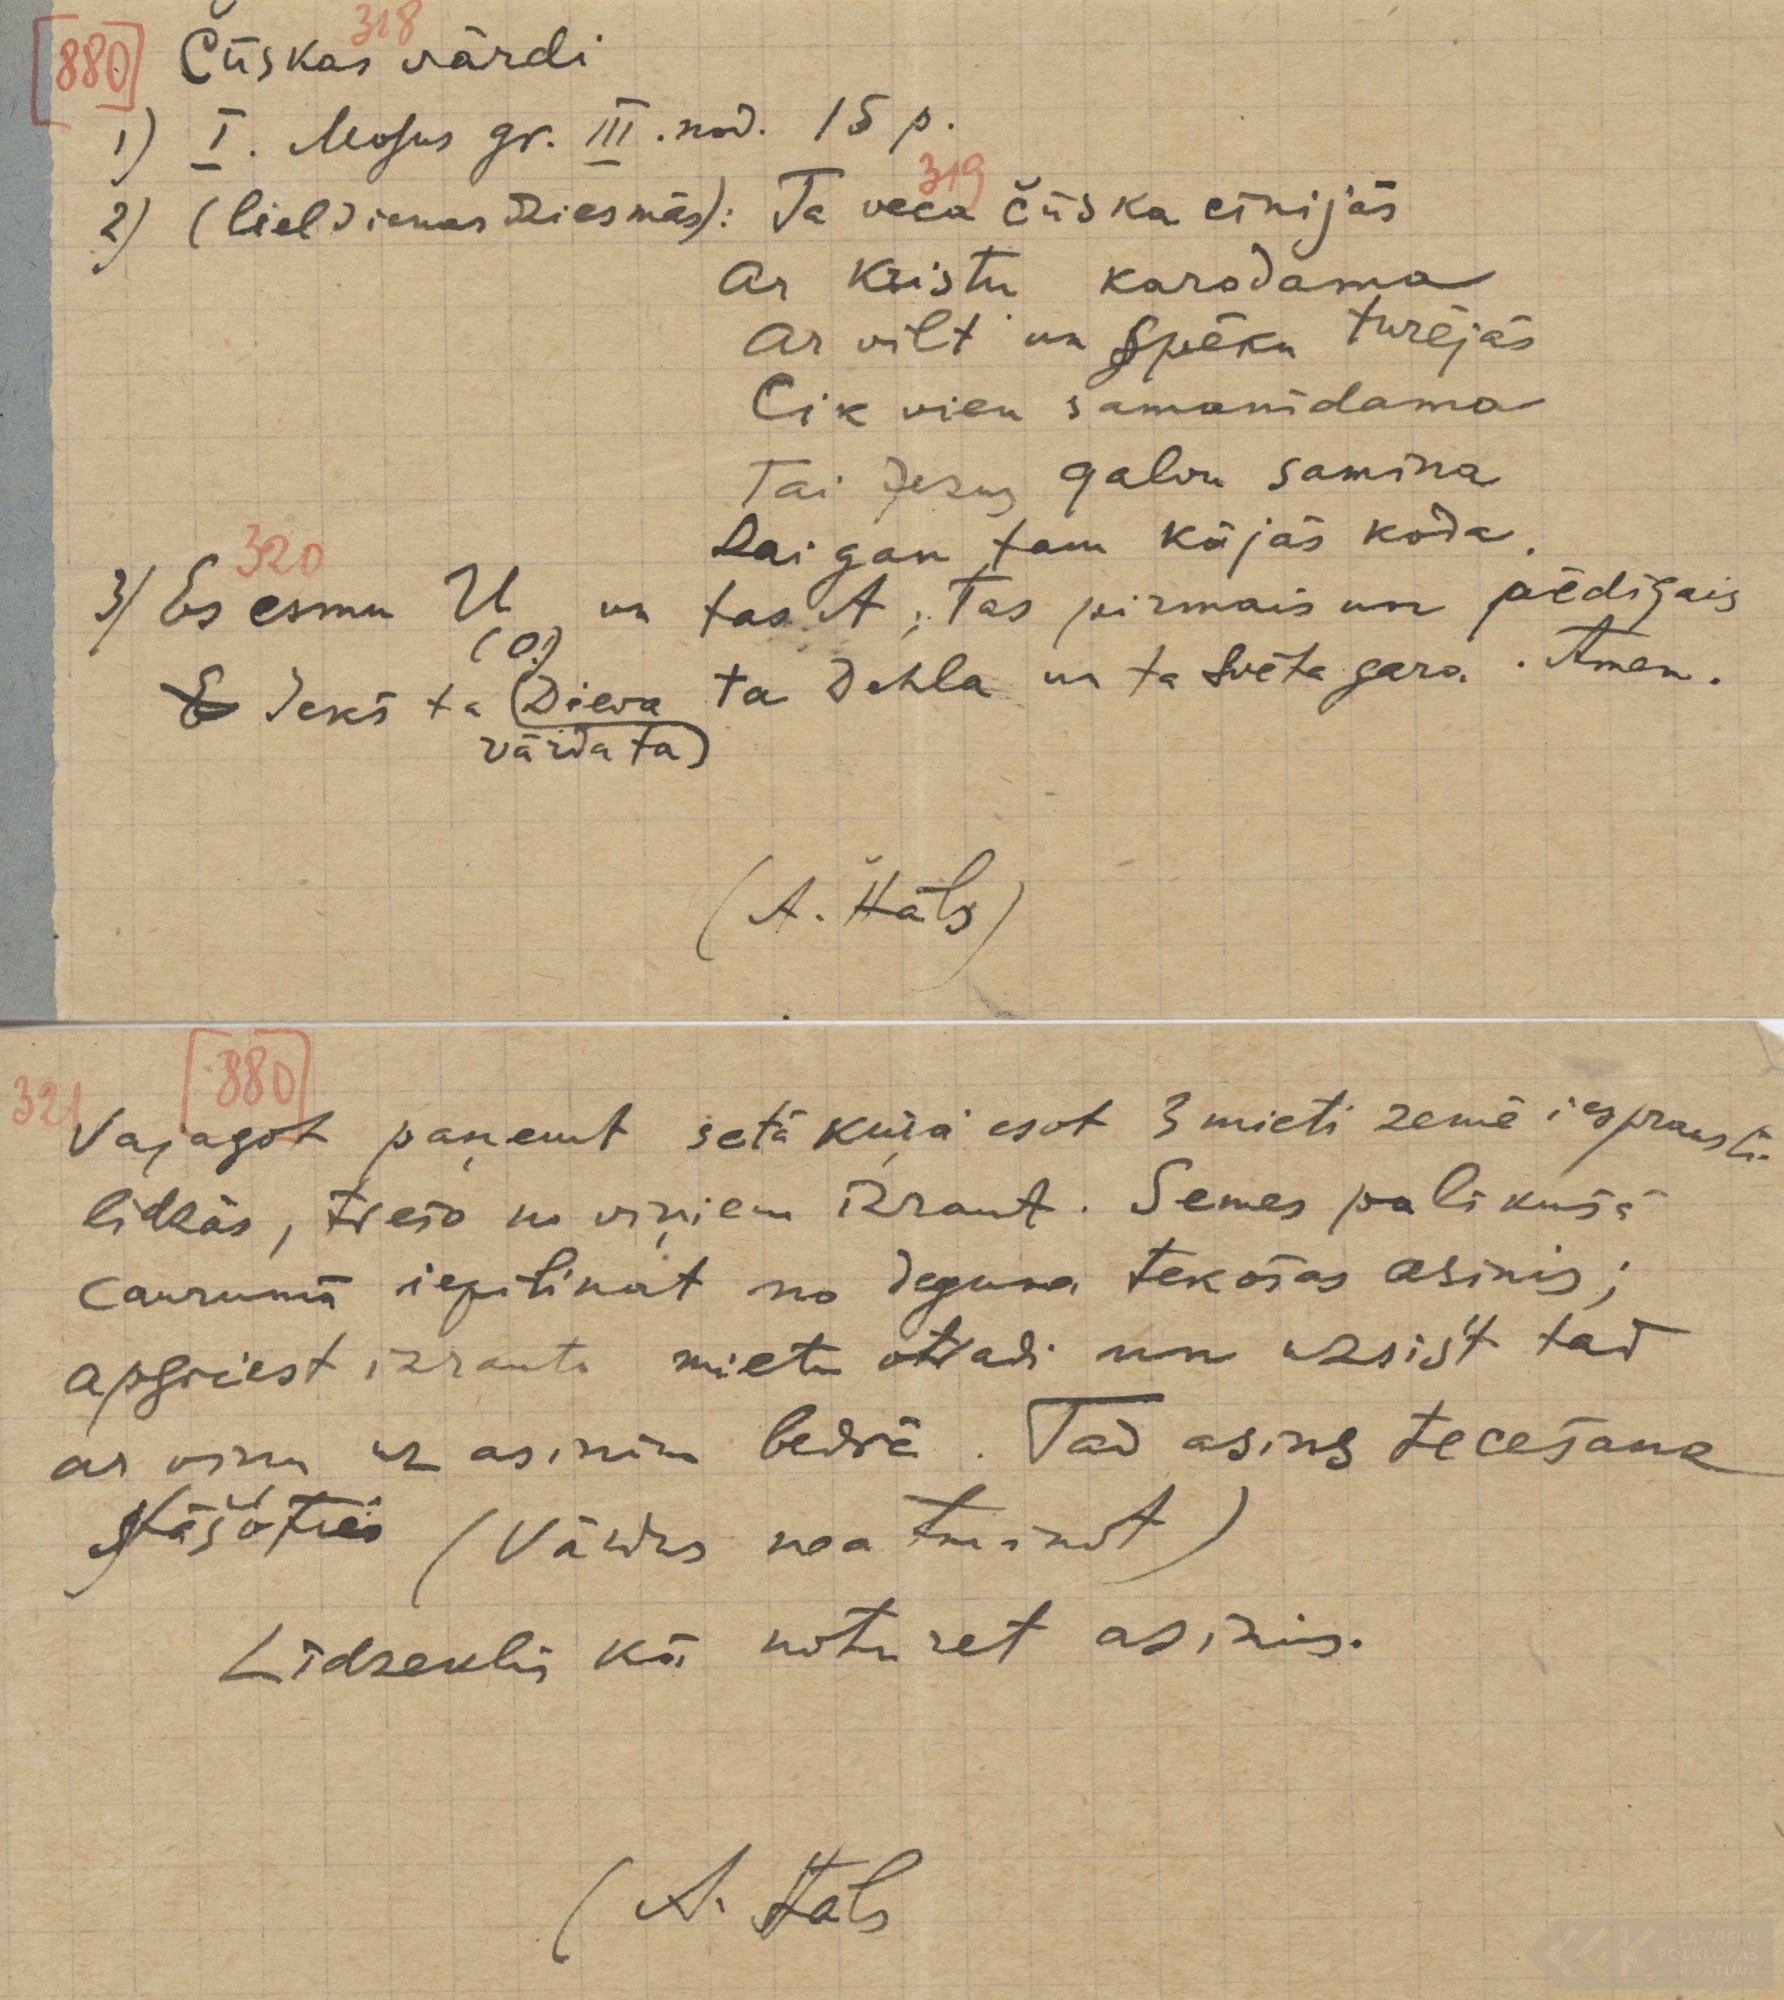 [880] Čūskas vārdi 318
1) I. Mosus gr. III. nod. 15 p.
2) (lieldienas dziesmās): Ta veca čūska cīnijās 319
Ar Kristu karodama
Ar vilt' un spēku turējās
Cik vien samanīdama
Tai Jezus galvu samina
Lai gan tam kājās koda.
320
3) Es esmu U un tas A, Tas pirmais un pēdīgais
(O!)
Iekš ta (Dieva ta Dehla un ta Svēta gara. Amen.
vārda ta)
(A. Štāls)
321 [880]
Vajagot paņemt setā kuŗā esot 3 mieti zemē iesprausti
lidzās, trešo no viņiem izraut. Semes palikušā
caurumā iepilināt no deguna tekošas asinis;
apgriest izrauto mietu otradi un uzsist tad
ar viņu uz asinīm bedrē. Tad asins tecešana
stāšoties (Vārdus neatminot)
Līdzeklis kā noturet asinis.
(A. Štāls
LATVIEŠU
FOLKLORAS
KRĀTUVE